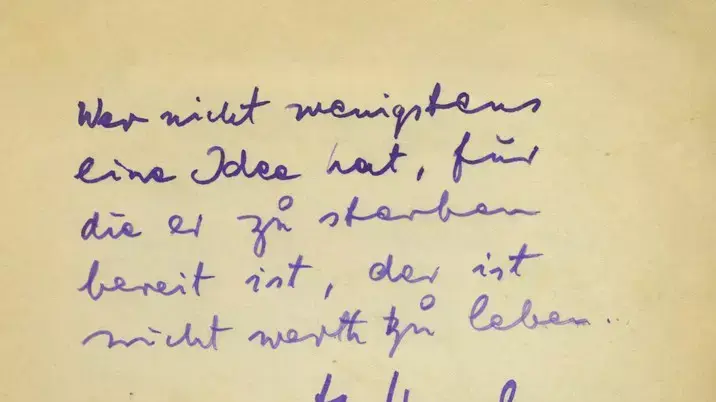 Wer nicht wenigstens
eine Idee hat, für
die er zu sterben
bereit ist, der ist
nicht werth zu leben..